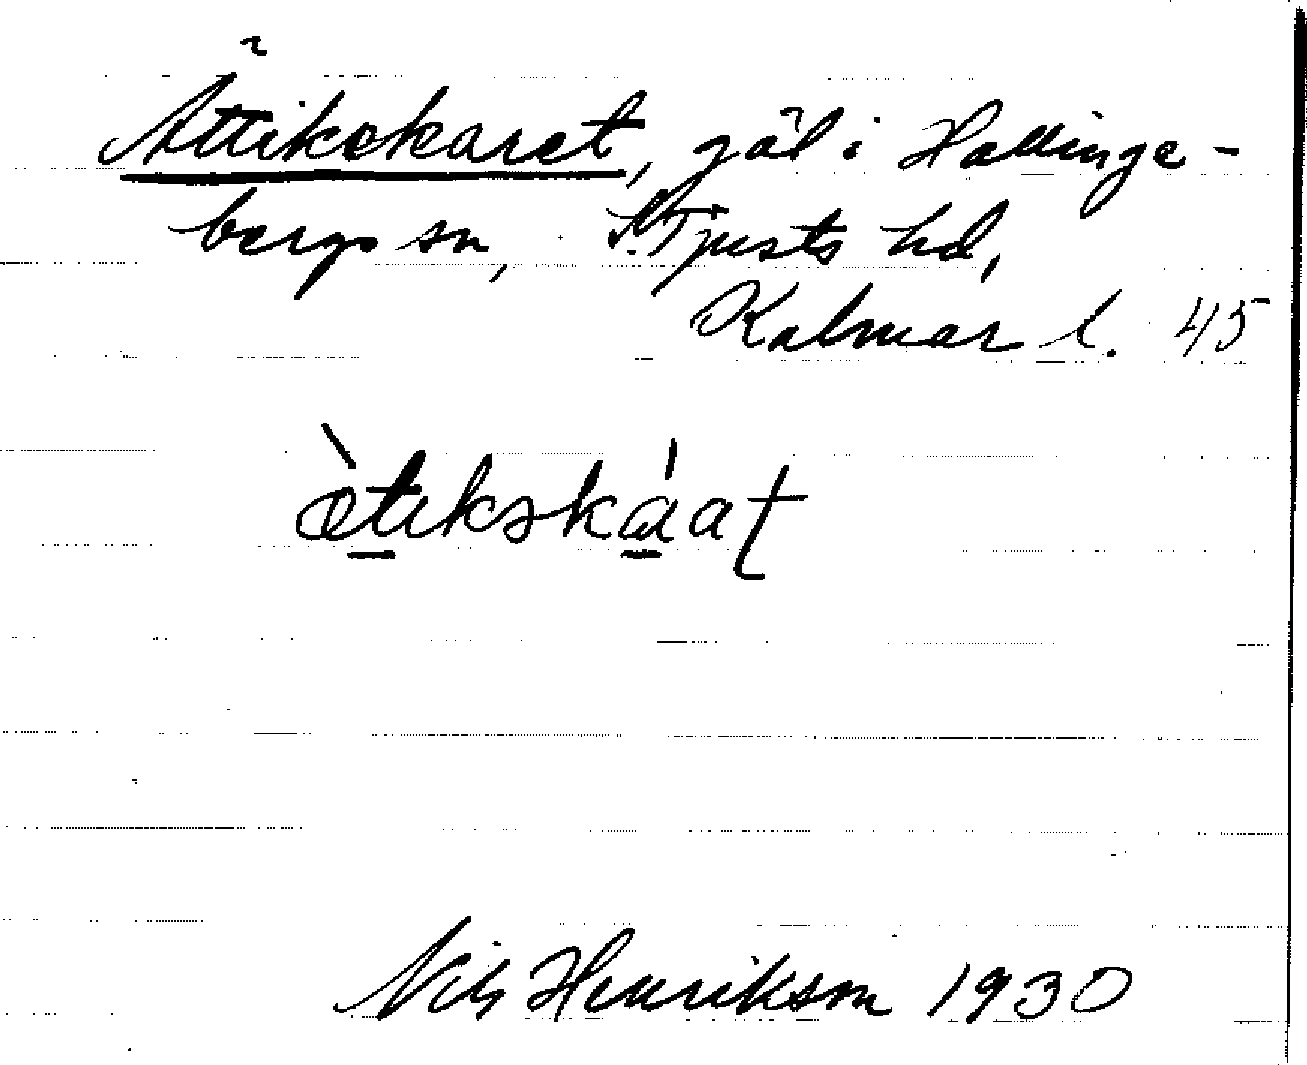 Ättikskaret, göl i Hallinge-
bergs sn, S. Tjusts hd,
Kalmar l. 45
ètikskáat
Nils Henrikson 1930